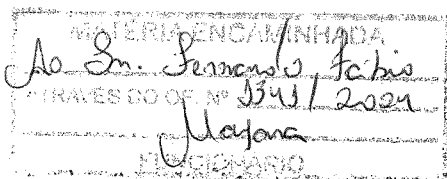 MATÉRIA ENCAMINHADA
Ao Sr. Fernando Fabio
ATRAVÉS DO OF. Nº 1341/2024
Mayara
FUNCIONÁRIO